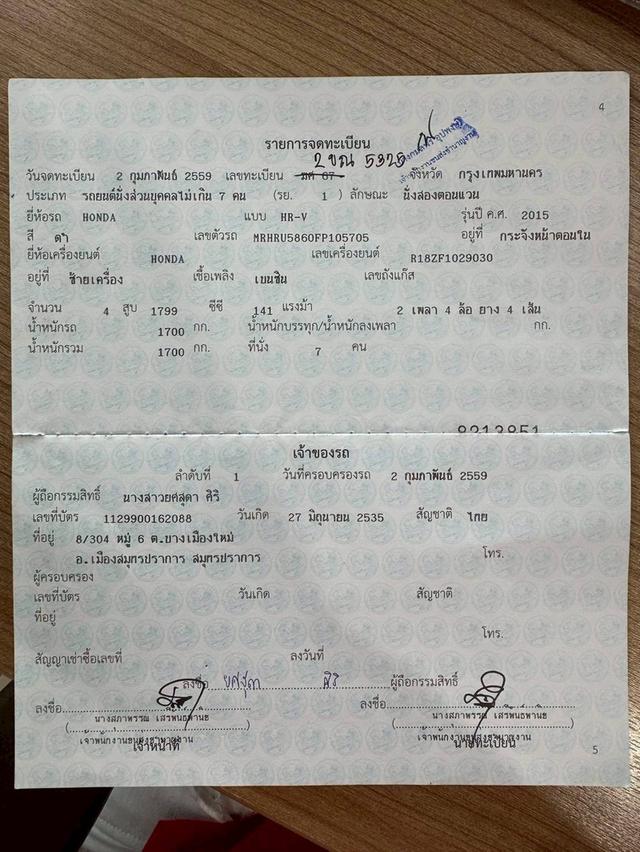 4
รายการจดทะเบียน
วันจดทะเบียน 2 กุมภาพันธ์ 2559 เลขทะเบียน 2ขณ 5325 จังหวัด กรุงเทพมหานคร
ประเภท รถยนต์นั่งส่วนบุคคลไม่เกิน 7 คน (รย. 1) ลักษณะ นั่งสองตอนแวน
ยี่ห้อรถ HONDA แบบ HR-V รุ่นปี ค.ศ. 2015
สี ดำ เลขตัวรถ MRHRU5860FP105705 อยู่ที่ กระจังหน้าตอนใน
ยี่ห้อเครื่องยนต์ HONDA เลขเครื่องยนต์ R18ZF1029030
อยู่ที่ ซ้ายเครื่อง เชื้อเพลิง เบนซิน เลขถังแก๊ส
จำนวน 4 สูบ 1799 ซีซี 141 แรงม้า 2 เพลา 4 ล้อ ยาง 4 เส้น
น้ำหนักรถ 1700 กก. น้ำหนักบรรทุก/น้ำหนักลงเพลา กก.
น้ำหนักรวม 1700 กก. ที่นั่ง 7 คน
8213851
เจ้าของรถ
ลำดับที่ 1 วันที่ครอบครองรถ 2 กุมภาพันธ์ 2559
ผู้ถือกรรมสิทธิ์ นางสาวยศสุดา ศิริ
เลขที่บัตร 1129900162088 วันเกิด 27 มิถุนายน 2535 สัญชาติ ไทย
ที่อยู่ 8/304 หมู่ 6 ต.บางเมืองใหม่
อ.เมืองสมุทรปราการ สมุทรปราการ โทร.
ผู้ครอบครอง
เลขที่บัตร วันเกิด สัญชาติ
ที่อยู่
โทร.
สัญญาเช่าซื้อเลขที่ ลงวันที่
ลงชื่อ ยศสุดา ศิริ ผู้ถือกรรมสิทธิ์
ลงชื่อ ลงชื่อ
(นางสภาพรรณ เสรีพันธ์พานิช) (นางสภาพรรณ เสรีพันธ์พานิช)
เจ้าพนักงานขนส่งชำนาญงาน เจ้าพนักงานขนส่งชำนาญงาน
เจ้าหน้าที่ นายทะเบียน
5